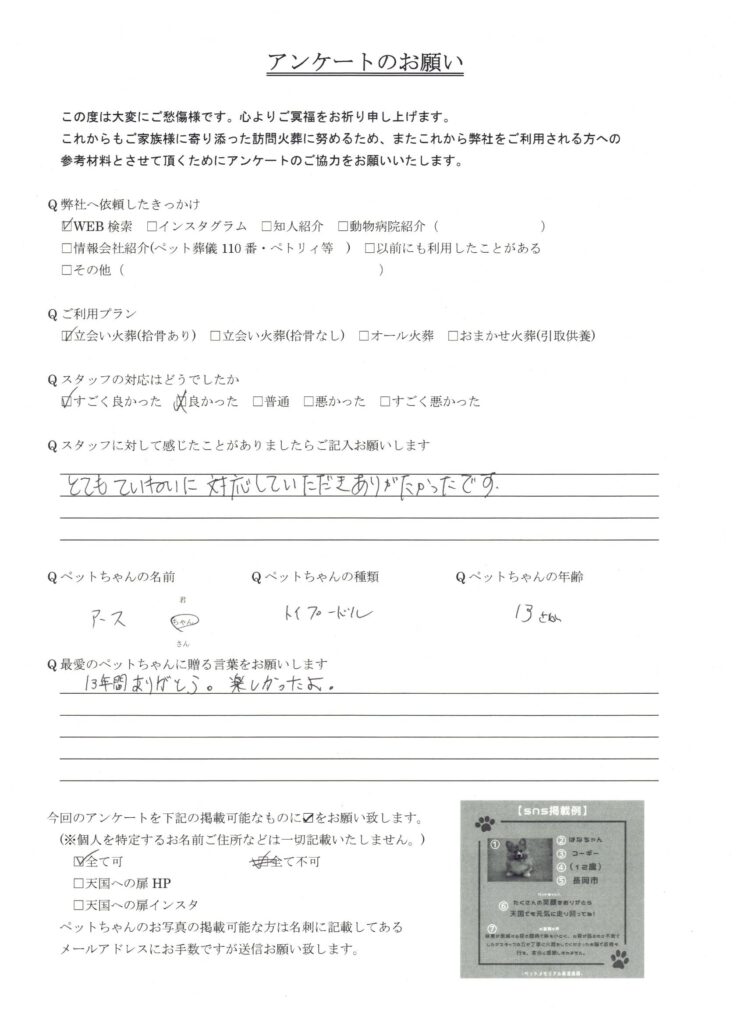 アンケートのお願い
この度は大変にご愁傷様です。心よりご冥福をお祈り申し上げます。
これからもご家族様に寄り添った訪問火葬に努めるため、またこれから弊社をご利用される方への
参考材料とさせて頂くためにアンケートのご協力をお願いいたします。
Q 弊社へ依頼したきっかけ
☑WEB 検索 □インスタグラム □知人紹介 □動物病院紹介（ ）
□情報会社紹介(ペット葬儀 110 番・ペトリィ等 ) □以前にも利用したことがある
□その他（ ）
Q ご利用プラン
☑立会い火葬(拾骨あり) □立会い火葬(拾骨なし) □オール火葬 □おまかせ火葬(引取供養)
Q スタッフの対応はどうでしたか
☑すごく良かった □良かった □普通 □悪かった □すごく悪かった
Q スタッフに対して感じたことがありましたらご記入お願いします
とてもていねいに 対応していただきありがたかったです.
Q ペットちゃんの名前 Q ペットちゃんの種類 Q ペットちゃんの年齢
君
アース ちゃん トイプードル 13さい
さん
Q 最愛のペットちゃんに贈る言葉をお願いします
13年間ありがとう。楽しかったよ.
今回のアンケートを下記の掲載可能なものに☑をお願い致します。
(※個人を特定するお名前ご住所などは一切記載いたしません。)
☑全て可 □全て不可
□天国への扉 HP
□天国への扉インスタ
ペットちゃんのお写真の掲載可能な方は名刺に記載してある
メールアドレスにお手数ですが送信お願い致します。
【sns掲載例】
① ② はなちゃん
③ コーギー
④ (12歳)
⑤ 長岡市
⑥ たくさんの笑顔をありがとう
天国でも元気に走り回ってね!
⑦